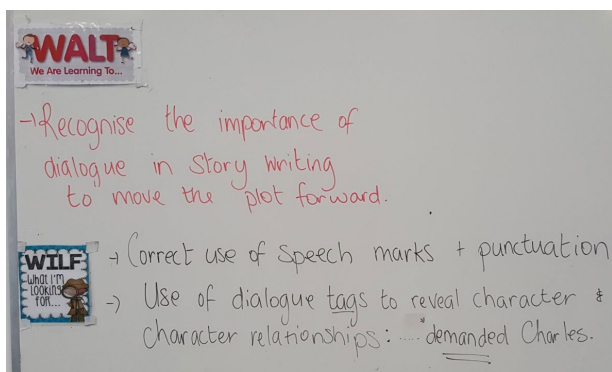 WALT
We Are Learning To...
→ Recognise the importance of
dialogue in Story Writing
to move the plot forward.
WILF
What I'm
Looking
for...
→ Correct use of speech marks + punctuation
→ Use of dialogue tags to reveal character &
character relationships: .... "demanded Charles.